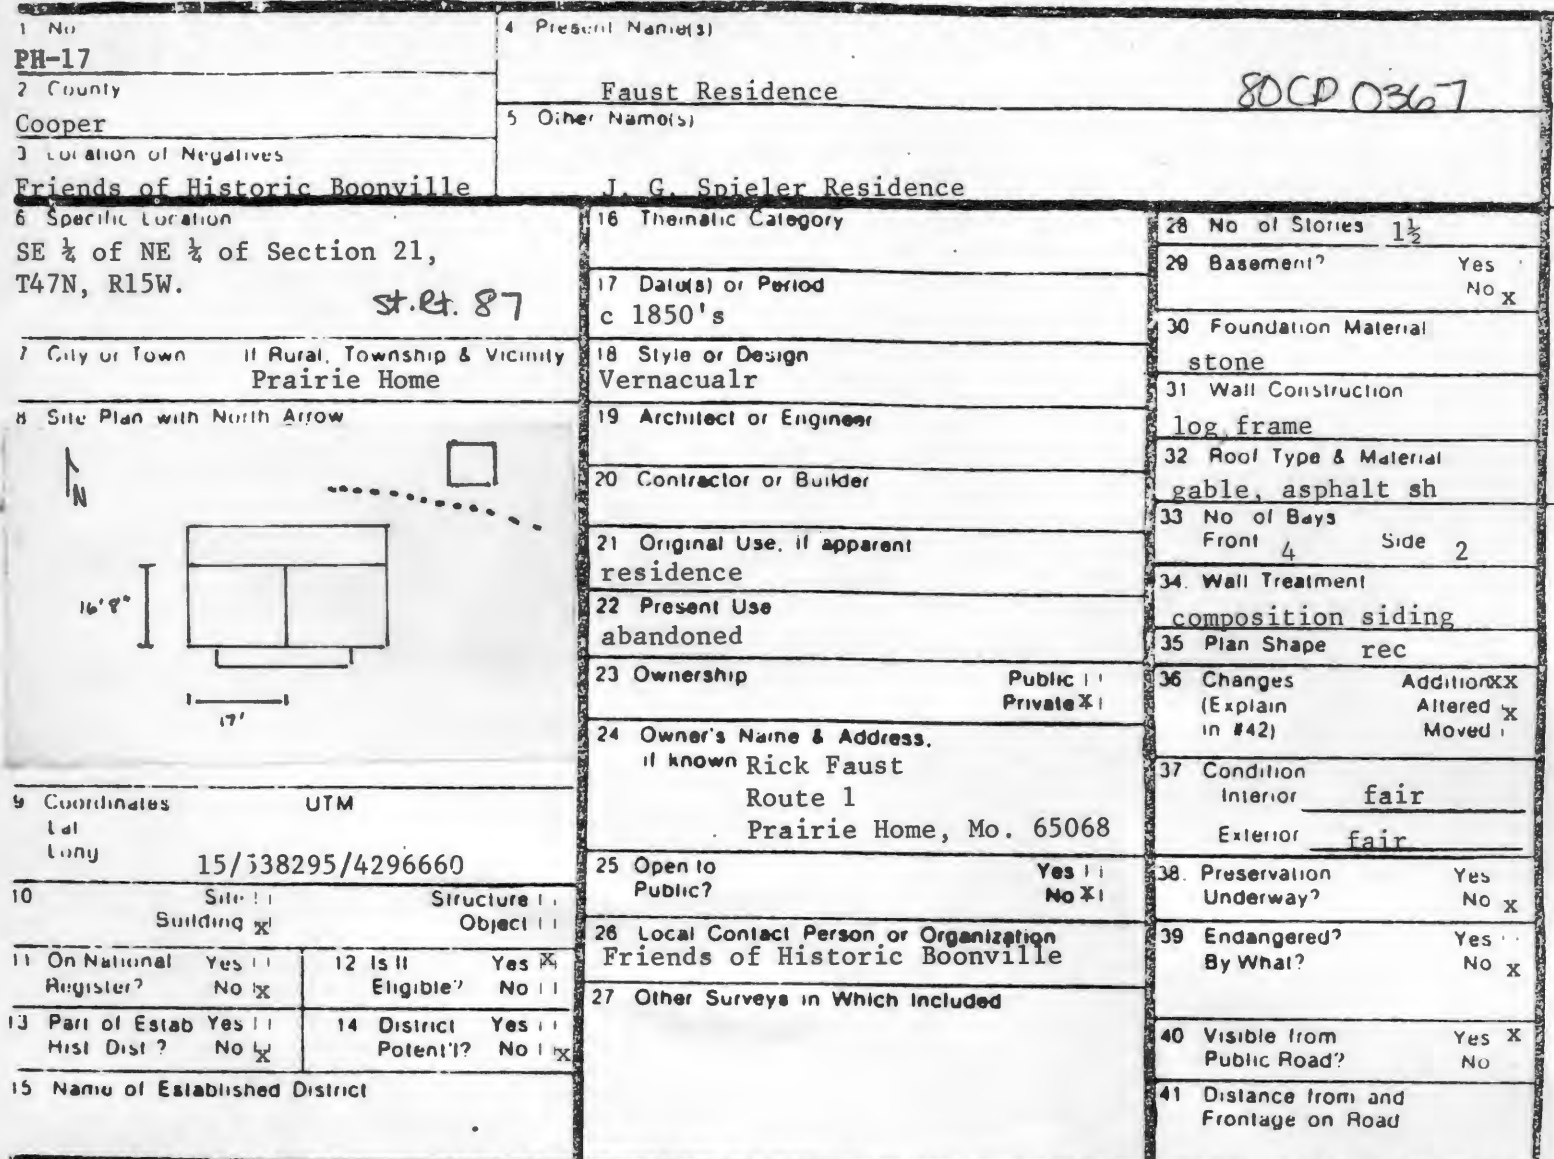 1 No
PH-17
2 County
Cooper
3 Location of Negatives
Friends of Historic Boonville
4 Present Name(s)
Faust Residence
80CP0367
5 Other Name(s)
J. G. Spieler Residence
6 Specific Location
SE ¼ of NE ¼ of Section 21,
T47N, R15W.
St. Rt. 87
7 City or Town If Rural, Township & Vicinity
Prairie Home
8 Site Plan with North Arrow
N
16'8"
17'
9 Coordinates UTM
Lat
Long
15/538295/4296660
10 Site Structure
Building x Object
11 On National Yes
Register? No x
12 Is It Yes x
Eligible? No
13 Part of Estab Yes
Hist Dist ? No x
14 District Yes
Potent'l? No x
15 Name of Established District
16 Thematic Category
17 Date(s) or Period
c 1850's
18 Style or Design
Vernacualr
19 Architect or Engineer
20 Contractor or Builder
21 Original Use, if apparent
residence
22 Present Use
abandoned
23 Ownership Public
Private x
24 Owner's Name & Address,
if known Rick Faust
Route 1
Prairie Home, Mo. 65068
25 Open to Yes
Public? No x
26 Local Contact Person or Organization
Friends of Historic Boonville
27 Other Surveys in Which Included
28 No of Stories 1½
29 Basement? Yes
No x
30 Foundation Material
stone
31 Wall Construction
log, frame
32 Roof Type & Material
gable, asphalt sh
33 No of Bays
Front 4 Side 2
34. Wall Treatment
composition siding
35 Plan Shape rec
36 Changes Addition xx
(Explain Altered x
in #42) Moved
37 Condition
Interior fair
Exterior fair
38. Preservation Yes
Underway? No x
39 Endangered? Yes
By What? No x
40 Visible from Yes x
Public Road? No
41 Distance from and
Frontage on Road